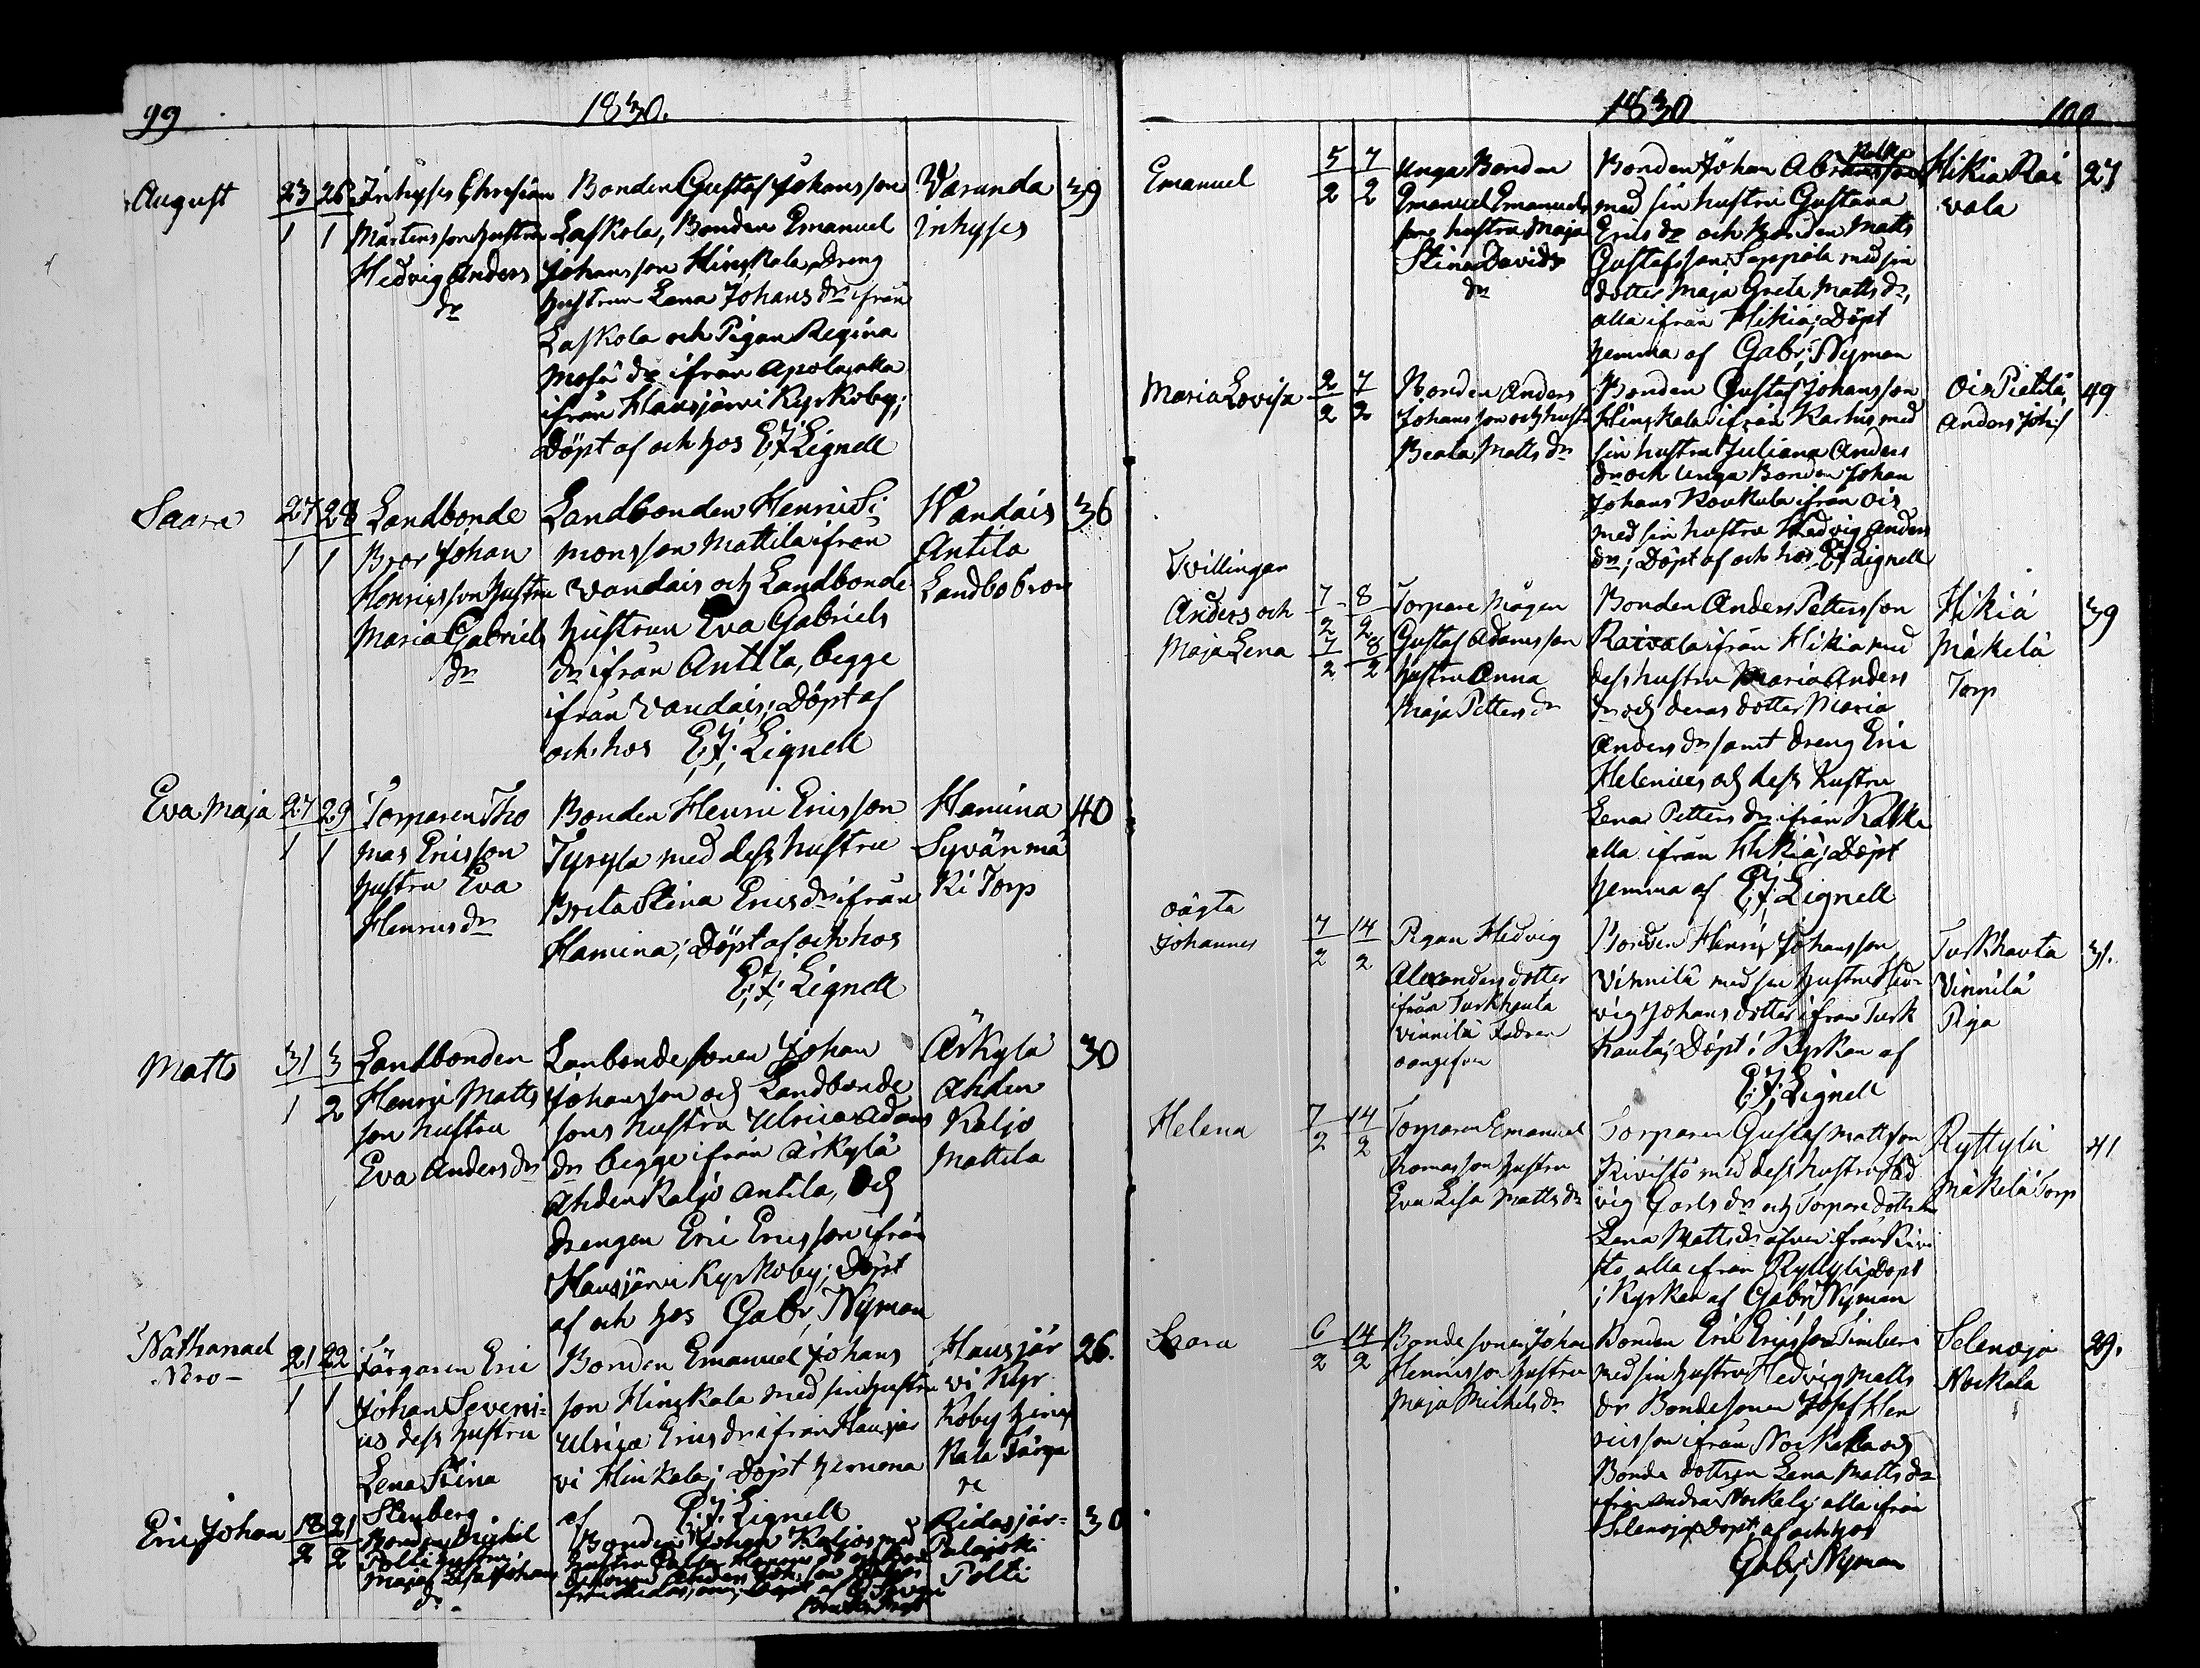 99 1830.
August 23/1 26/1
Inhyses Chrisian
Mårtensson hustru
Hedvig Anders
dr
Bonden Gustaf Johansson
Laskola, Bonden Emanuel
Johansson Hinskala, Dreng
hustrun Lena Johans dr ifrån
Laskola och Pigan Regina
Mosis dr ifrån Apola, alla
ifrån Hausjärvi Kyrkoby;
Döpt af och hos E. J. Lignell
Varunda
inhyses
39
Saara 27/1 28/1
Landbonde
Bror Johan
Henricsson hustru
Maria Gabriels
dr
Landbonden Henric Si
monsson Mattila ifrån
Vandais och Landbonde
hustrun Eva Gabriels
dr ifrån Antila, begge
ifrån Vandais; Döpt af
och hos E. J. Lignell
Vandais
Antila
Landbobror
36
Eva Maja 27/1 29/1
Torparen Tho
mas Ericsson
hustru Eva
Henricsdr
Bonden Henric Ericsson
Tyryla med dess hustru
Brita Stina Ericsdr ifrån
Hamina; Döpt af och hos
E. J. Lignell
Hamina
Syvänmä
ki Torp
40
Matts 31/1 3/2
Landbonden
Henric Matts
son hustru
Eva Andersdr
Lanbondesonen Johan
Johansson och Landbonde
sons hustru Ulrica Adams
dr begge ifrån Arkylä
Ahdenkaljo Antila, och
drengen Eric Ericsson ifrån
Hausjärvi Kyrkoby; Döpt
af och hos Gabr. Nyman
Arkylä
Ahden
Kaljo
Mattila
30
Nathanael
Nero 21/1 22/1
Färgaren Eric
Johan Severi=
us dess hustru
Lena Stina
Stenberg
Bonden Emanuel Johans
son Hinskala med sin hustru
Ulrica Ericsdr ifrån Hausjär
vi Hinskala; Döpt hemma
af E. J. Lignell
Hausjär
vi Kyr
koby Hins
kala Färga
re
26.
Eric Johan 18/2 21/2
Bonden Michel
Polti hustru
Maja Lisa Johans
dr
Bonden Johan Kaljos med
hustru
Ridasjär=
Palajoki
Polti
30
1830 100
Emanuel 5/2 7/2
Unga Bonden
Emanuel Emanuels
sons hustru Maja
Stina Davids
dr
Bonden Johan Abramsson
med sin hustru Gustava
Erics dr och Bonden Matts
Gustafsson Seppälä med sin
dotter Maja Greta Matts dr,
alla ifrån Hikiä; Döpt
hemma af Gabr. Nyman
Hikiä Rai
vala
27
Maria Lovisa 2/2 7/2
Bonden Anders
Johansson och hustru
Beata Matts dr
Bonden Gustaf Johansson
Hinskala ifrån Karhis med
sin hustru Juliana Anders
dr och unga Bonden Johan
Johans Koukula ifrån Ois
med sin hustru Hedvig Anders
dr; Döpt af och hos E. J. Lignell
Ois Pietilä,
Anders Joh:s
49
Tvillingar
Anders och 7/2 8/2
Maja Lena 7/2 8/2
Torpare Mågen
Gustaf Adamsson
hustru Anna
Maja Petters dr
Bonden Anders Pettersson
Raivala ifrån Hikiä med
dess hustru Maria Anders
dr och deras dotter Maria
Anders dr samt dreng Eric
Helenius och dess hustru
Lena Petters dr ifrån Kalke
alla ifrån Hikiä; Döpt
hemma af E. J. Lignell
Hikiä
Mäkelä
Torp
39
oägta
Johannes 7/2 14/2
Pigan Hedvig
Alexanders dotter
ifrån Turkhauta
Vinnilä Fadren
oangifven
Bonden Henric Johansson
Vinnilä med sin hustru Hed=
vig Johansdotter ifrån Turk
hauta; Döpt i Kyrkan af
E. J. Lignell
Turkhauta
Vinnilä
Piga
31.
Helena 7/2 14/2
Torparen Emanuel
Thomasson hustru
Eva Lisa Mattsdr
Torparen Gustaf Mattsson
Kivistö med dess hustru Hed
vig Carls dr och Torpare dottren
Lena Mattsdr äfven ifrån Kivi
stö, alla ifrån Ryttylä; Döpt
i Kyrkan af Gabr. Nyman
Ryttylä
Mäkelä Torp
41
Saara 6/2 14/2
Bondesonen Johan
Henricsson hustru
Maja Michelsdr
Bonden Eric Ericsson Timberi
med sin hustru Hedvig Matts
dr Bondesonen Josef Hen
ricsson ifrån Nockala och
Bonde dottren Lena Matts dr
ifrån andra Nockala; alla ifrån
Selenoja; Döpt af och hos
Gabr. Nyman
Selenoja
Nockala
29.